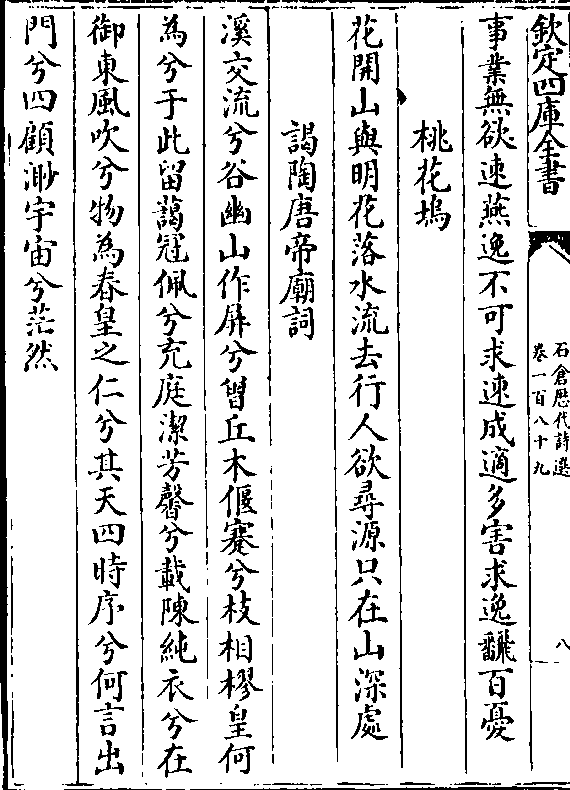 欽定四庫全書
石倉歷代詩選
卷一百八十九
八
事業無欲速燕逸不可求速成適多害求逸飜百憂
桃花塢
花開山與明花落水流去行人欲尋源只在山深處
謁陶唐帝廟詞
溪交流兮谷幽山作屏兮曽丘木偃蹇兮枝相樛皇何
為兮于此留藹冠佩兮充庭潔芳馨兮載陳純衣兮在
御東風吹兮物為春皇之仁兮其天四時序兮何言出
門兮四顧渺宇宙兮茫然